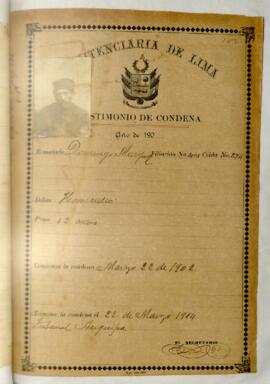 PENITENCIARIA DE LIMA
TESTIMONIO DE CONDENA
Año de 190
Rematado Domingo Filiación No. Celda No.
Delito Homicidio
Pena 12 años
Comienza la condena Marzo 22 de 1902
Termina la condena el 22 de Marzo 1914
Tribunal Arequipa
EL SECRETARIO